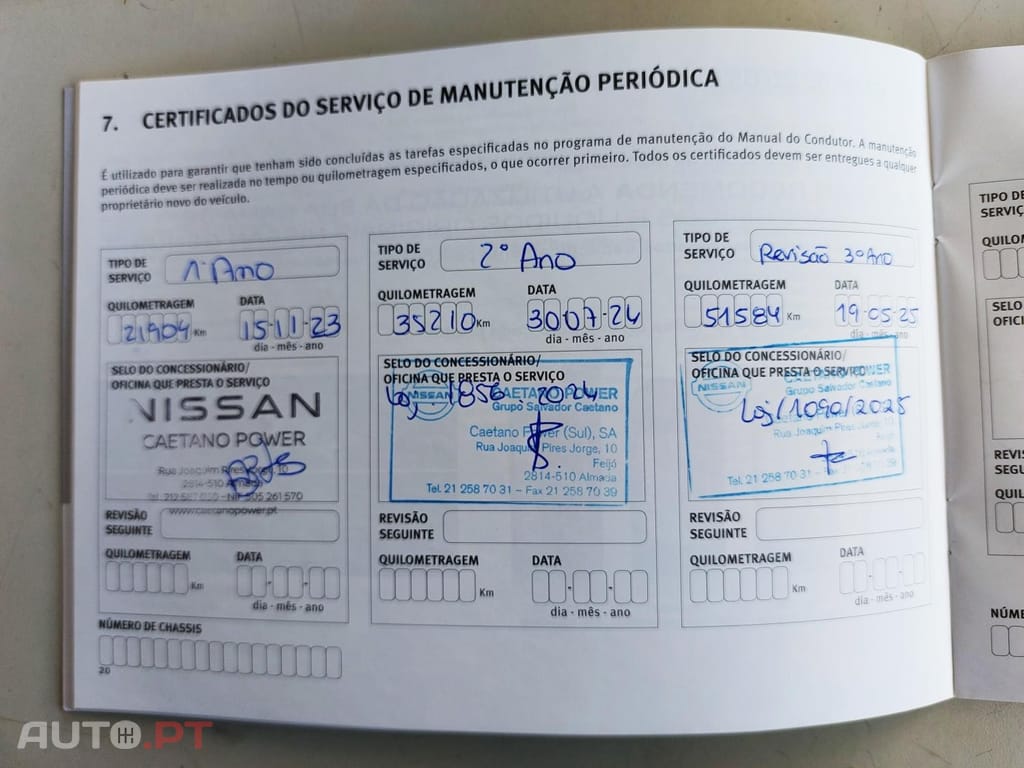 7. CERTIFICADOS DO SERVIÇO DE MANUTENÇÃO PERIÓDICA
É utilizado para garantir que tenham sido concluídas as tarefas especificadas no programa de manutenção do Manual do Condutor. A manutenção
periódica deve ser realizada no tempo ou quilometragem especificados, o que ocorrer primeiro. Todos os certificados devem ser entregues a qualquer
proprietário novo do veículo.
TIPO DE
SERVIÇO
1º Ano
QUILOMETRAGEM
DATA
21904 Km
15-11-23
dia - mês - ano
SELO DO CONCESSIONÁRIO/
OFICINA QUE PRESTA O SERVIÇO
NISSAN
CAETANO POWER
Rua Joaquim Pires Jorge, 10
2814-510 Almada
NIF 505 261 570
www.caetanopower.pt
REVISÃO
SEGUINTE
QUILOMETRAGEM
DATA
Km
dia - mês - ano
NÚMERO DE CHASSIS
20
TIPO DE
SERVIÇO
2º Ano
QUILOMETRAGEM
DATA
35210 Km
30-07-24
dia - mês - ano
SELO DO CONCESSIONÁRIO/
OFICINA QUE PRESTA O SERVIÇO
NISSAN
CAETANO POWER
1856 2024
Grupo Salvador Caetano
Caetano Power (Sul), SA
Rua Joaquim Pires Jorge, 10
Feijó
2814-510 Almada
Tel. 21 258 70 31 - Fax 21 258 70 39
REVISÃO
SEGUINTE
QUILOMETRAGEM
DATA
Km
dia - mês - ano
TIPO DE
SERVIÇO
Revisão 3º Ano
QUILOMETRAGEM
DATA
51584 Km
19-05-25
dia - mês - ano
SELO DO CONCESSIONÁRIO/
OFICINA QUE PRESTA O SERVIÇO
NISSAN
POWER
Grupo Salvador Caetano
Loj/1090/2025
Rua Joaquim Pires Jorge, 10
Feijó
2814-510 Almada
Tel. 21 258 70 31
REVISÃO
SEGUINTE
QUILOMETRAGEM
DATA
Km
dia - mês - ano
TIPO DE
SERVIÇ
QUILO
SELO
OFICI
REVIS
SEGU
QUIL
NÚME
AUTO.PT